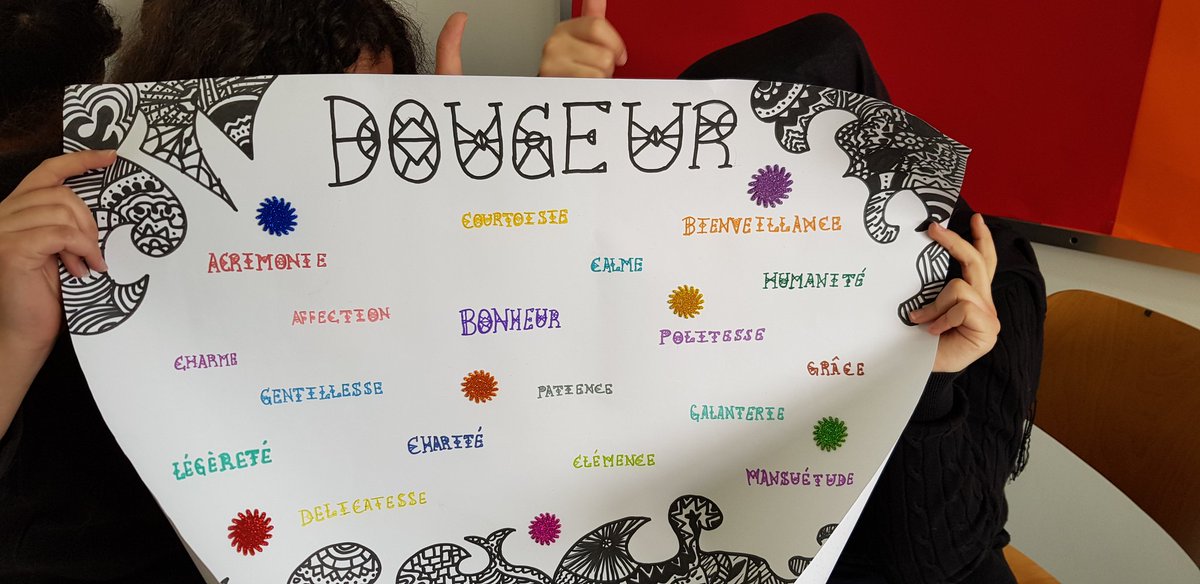 DOUCEUR
COURTOISIE
BIENVEILLANCE
ACRIMONIE
CALME
HUMANITÉ
AFFECTION
BONHEUR
POLITESSE
CHARME
GRÂCE
GENTILLESSE
PATIENCE
GALANTERIE
LÉGÈRETÉ
CHARITÉ
CLÉMENCE
MANSUÉTUDE
DELICATESSE